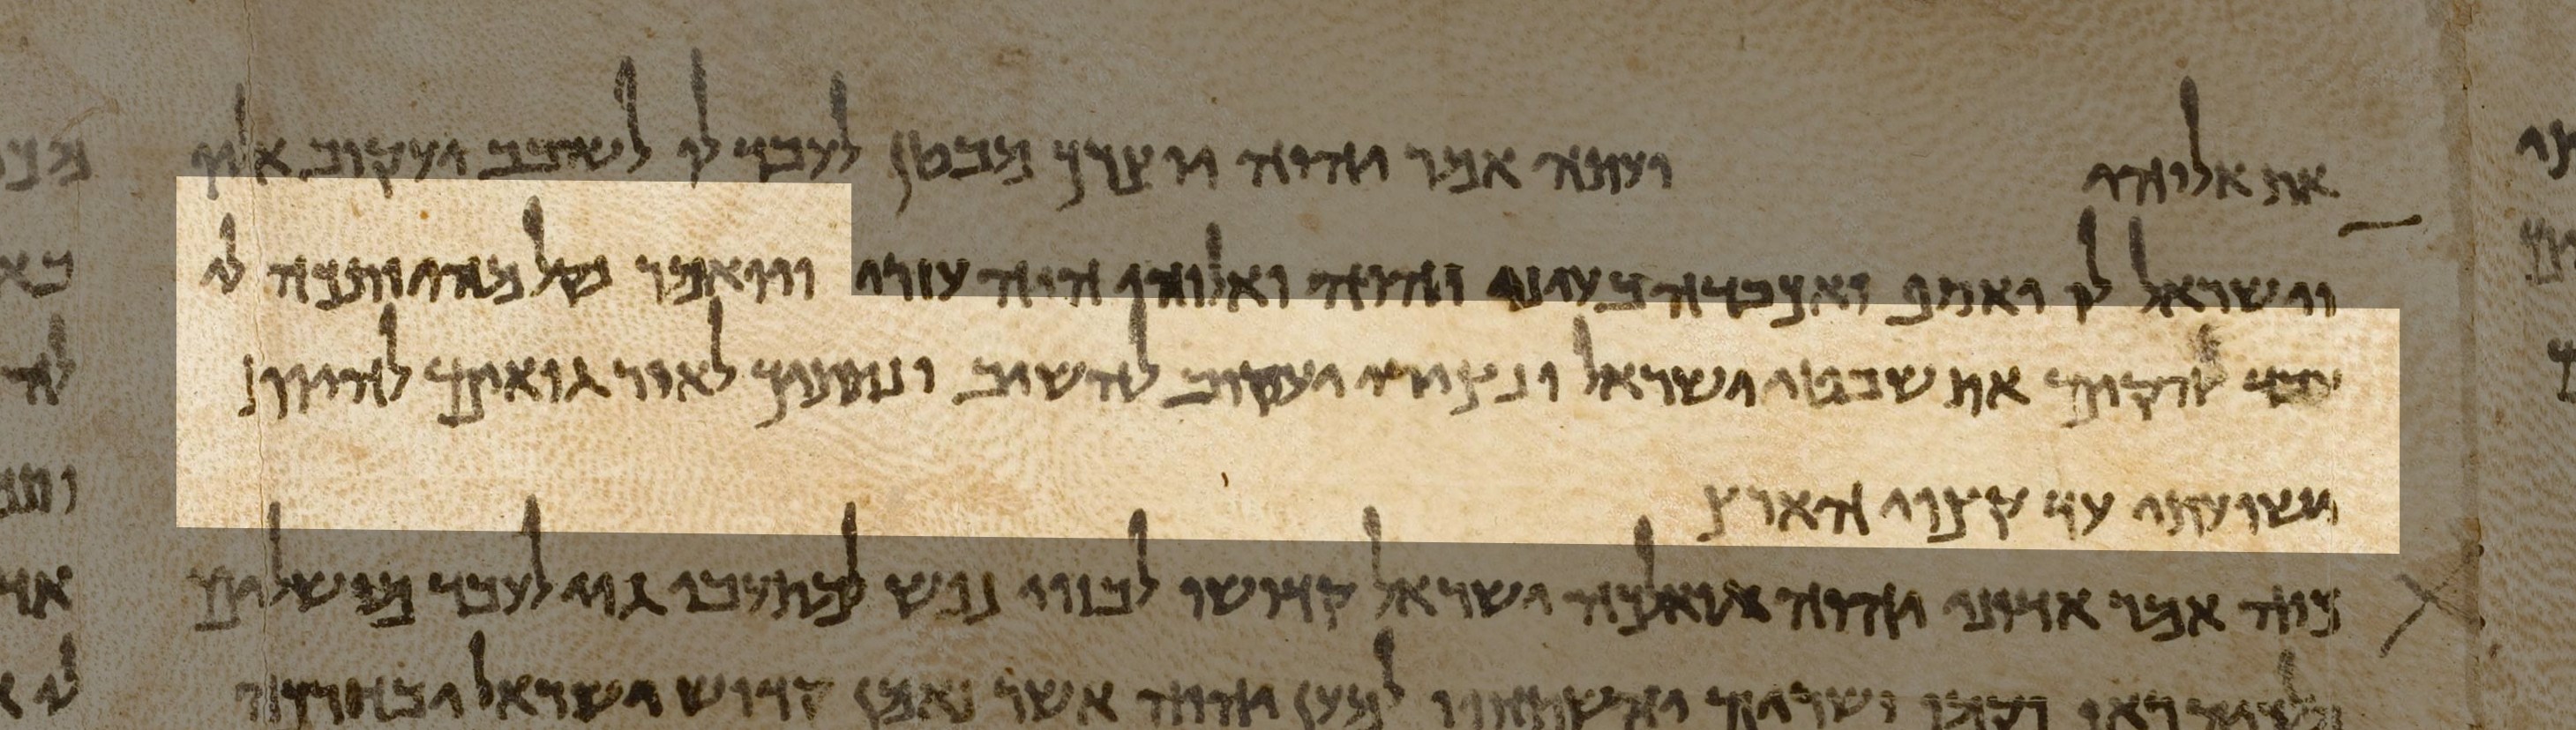 את אלוהי ועתה אמר יהוה יוצרך מבטן לעבד לו לשובב יעקוב אליו
וישראל לו יאסף ואכבדה בעיני יהוה ואלוהי היה עוזרי ויואמר נקל מהיותכה לי
עבד להקים את שבטי ישראל ונצירי יעקוב להשיב ונתתיך לאור גואים להיות
ישועתי עד קצוי הארץ
כוה אמר אדוני יהוה גואלכה ישראל קדושו לבזוי נפש למתעבי גוי לעבד מושלים
מלכים ראו וקמו ושרים והשתחוו למען יהוה אשר נאמן קדוש ישראל ויבחרכה